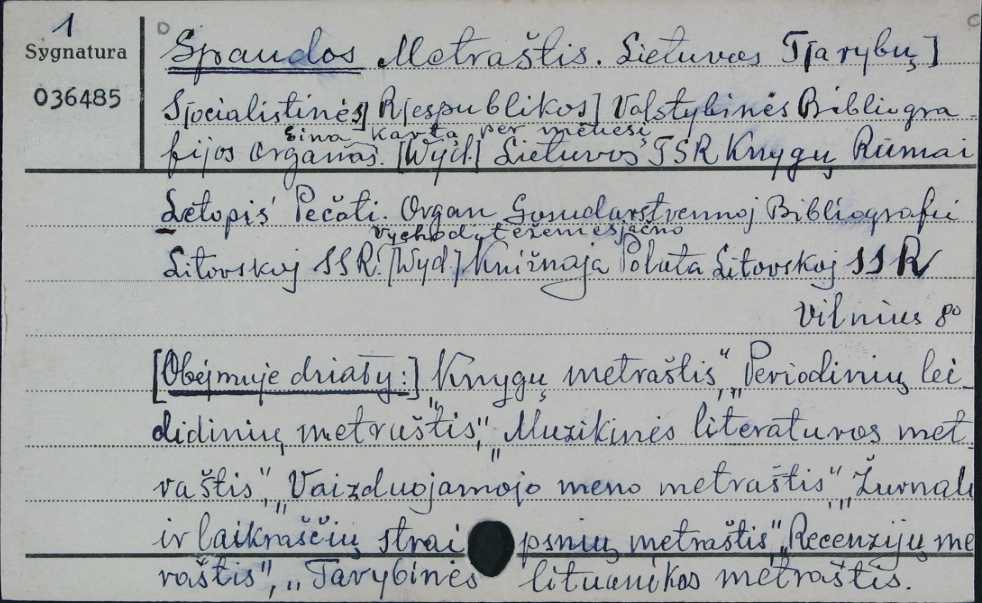 1
Sygnatura
036485
Spaudos Metraštis. Lietuvos T[arybų]
S[ocialistinės] R[espublikos] Valstybinės Bibliogra-
Eina kartą per mėnesį
fijos organas. [Wyd.] Lietuvos TSR Knygų Rūmai
Letopis' Pečati. Organ Gosudarstvennoj Bibliografii
Vychodyt ežemesjačno
Litovskoj SSR. [Wyd.] Knižnaja Palata Litovskoj SSR
Vilnius 8°
[Obejmuje działy:] „Knygų metraštis", „Periodinių lei-
didinių metraštis", „Muzikinės literatūros met-
raštis", „Vaizduojamojo meno metraštis", „Žurnalų
ir laikraščių straipsnių metraštis", „Recenzijų me
raštis", „Tarybinės lituanikos metraštis.